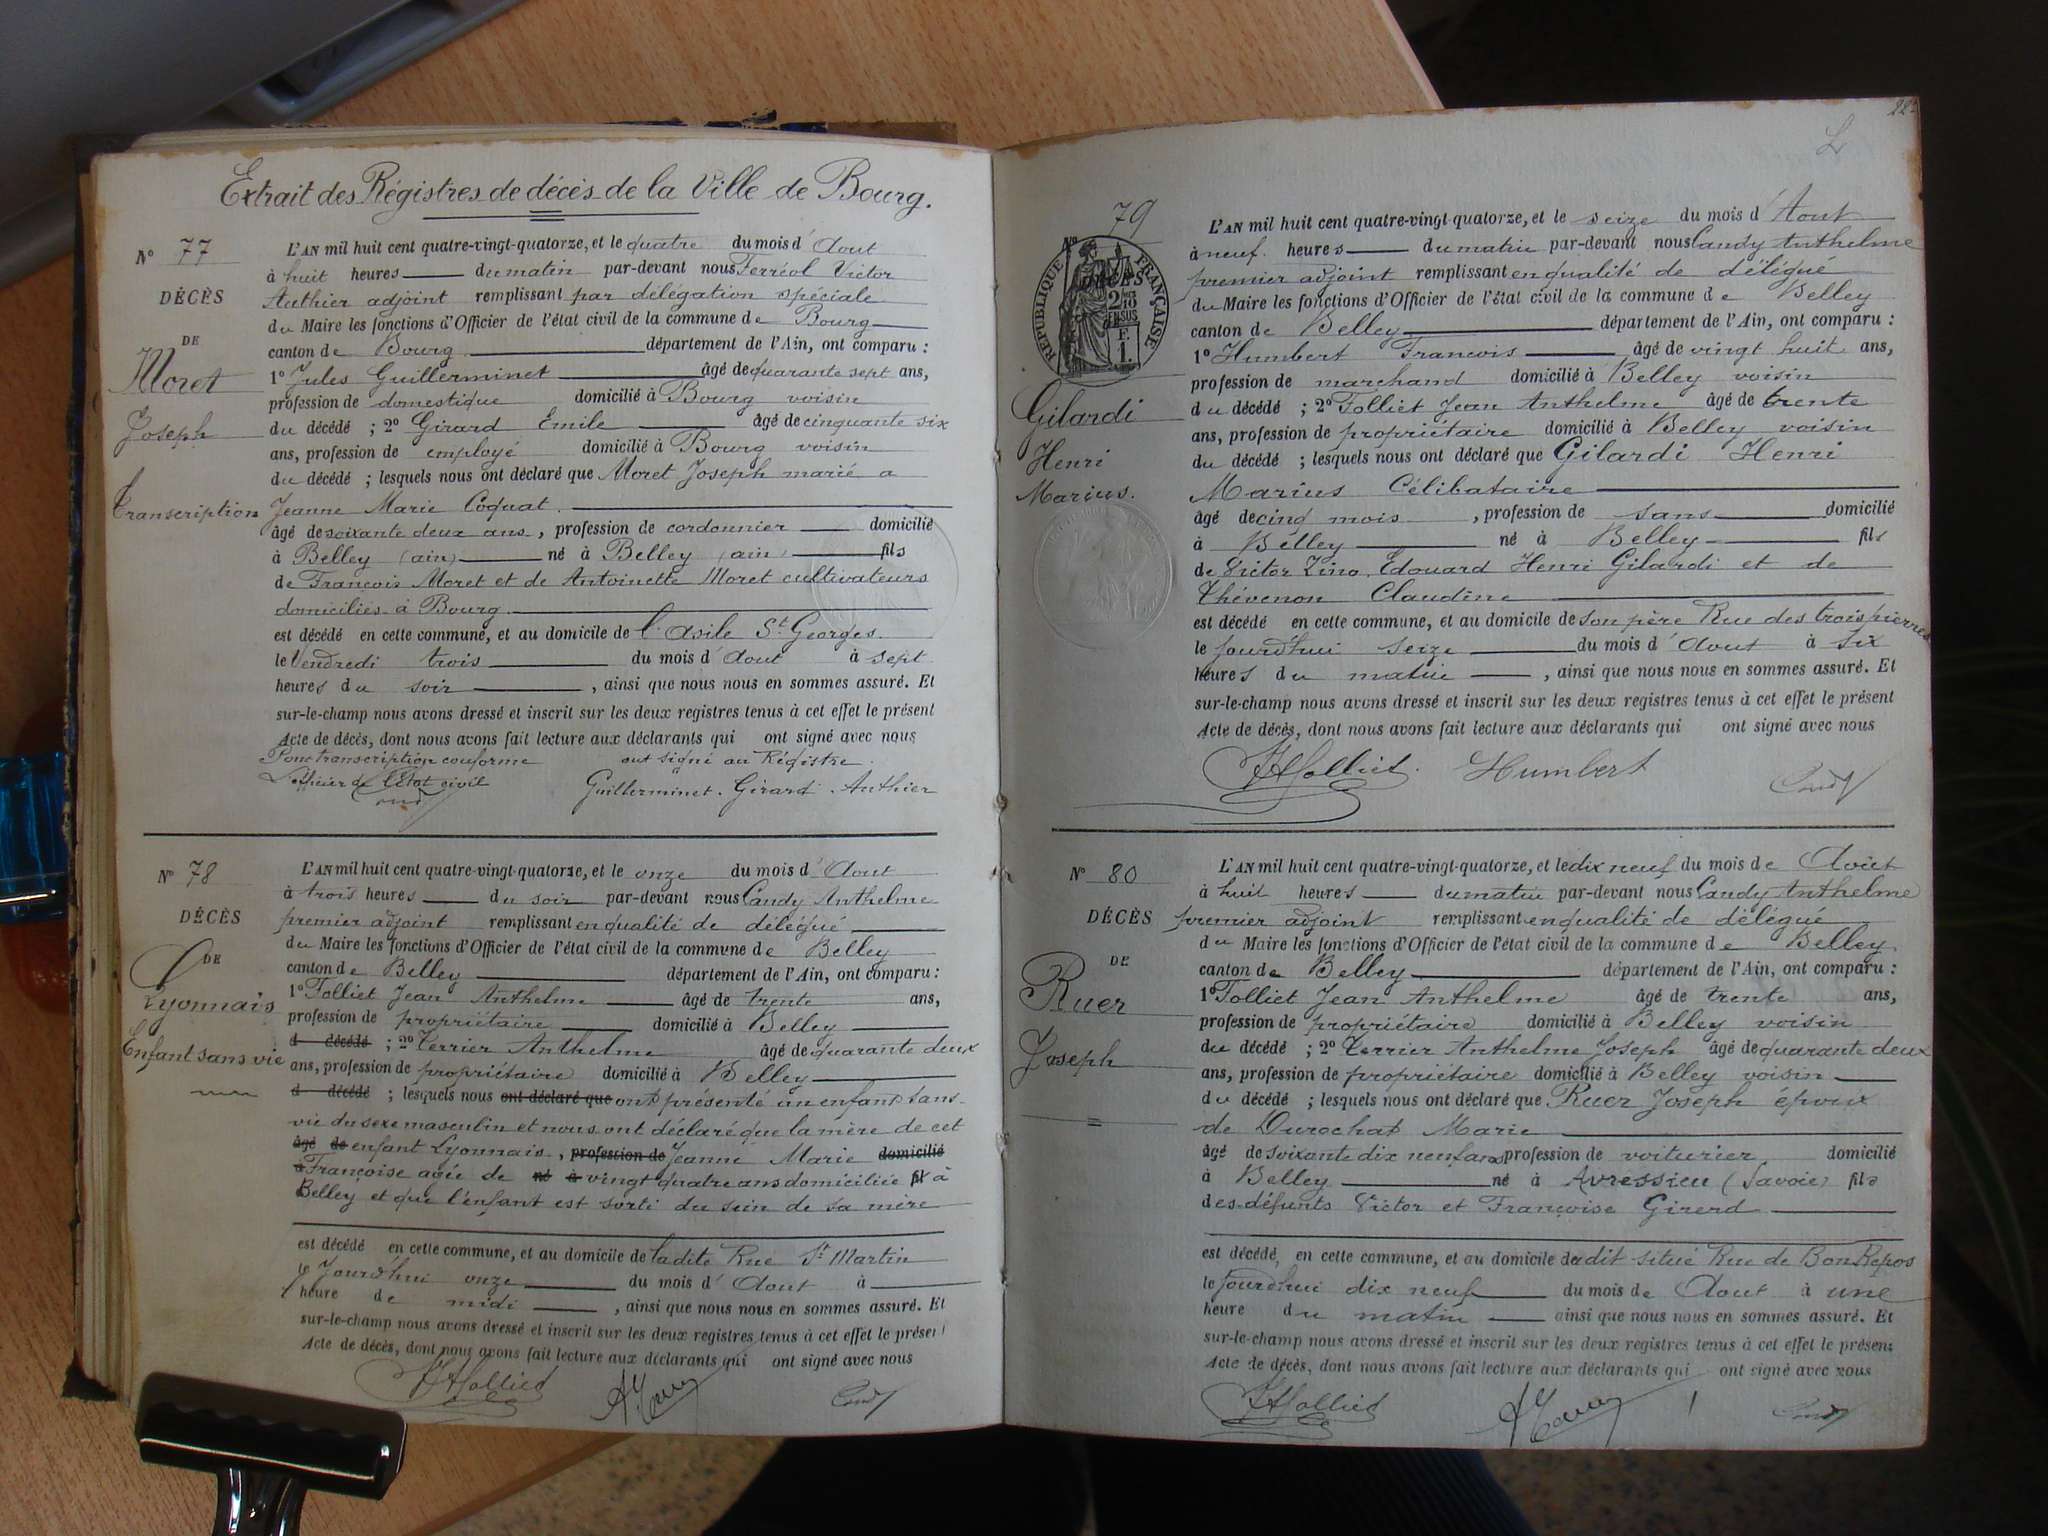 Extrait des Régistres de décès de la Ville de Bourg.
N° 77
DÉCÈS
DE
Moret
Joseph
Transcription
L'AN mil huit cent quatre-vingt-quatorze, et le quatre du mois d'Aout
à huit heures du matin par-devant nous Ferréol Victor
Authier adjoint remplissant par délégation spéciale
du Maire les fonctions d'Officier de l'état civil de la commune de Bourg
canton de Bourg département de l'Ain, ont comparu :
1° Jules Guillerminet âgé de quarante sept ans,
profession de domestique domicilié à Bourg voisin
du décédé ; 2° Girard Emile âgé de cinquante six
ans, profession de employé domicilié à Bourg voisin
du décédé ; lesquels nous ont déclaré que Moret Joseph marié a
Jeanne Marie Coquat.
âgé de soixante deux ans, profession de cordonnier domicilié
à Belley (ain) né à Belley (ain) fils
de François Moret et de Antoinette Moret cultivateurs
domiciliés à Bourg.
est décédé en cette commune, et au domicile de l'Asile St Georges.
le Vendredi trois du mois d'Aout à sept
heures du soir, ainsi que nous nous en sommes assuré. Et
sur-le-champ nous avons dressé et inscrit sur les deux registres tenus à cet effet le présent
Acte de décès, dont nous avons fait lecture aux déclarants qui ont signé avec nous
Pour transcription conforme ont signé au Régistre.
L'officier de l'Etat civil Guillerminet. Girard. Authier
N° 78
DÉCÈS
DE
Lyonnais
Enfant sans vie
L'AN mil huit cent quatre-vingt-quatorze, et le onze du mois d'Aout
à trois heures du soir par-devant nous Candy Anthelme
premier adjoint remplissant en qualité de délégué
du Maire les fonctions d'Officier de l'état civil de la commune de Belley
canton de Belley département de l'Ain, ont comparu :
1° Tolliet Jean Anthelme âgé de trente ans,
profession de propriétaire domicilié à Belley
d décédé ; 2° Terrier Anthelme âgé de quarante deux
ans, profession de propriétaire domicilié à Belley
d décédé ; lesquels nous ont déclaré que ont présenté un enfant sans
vie du sexe masculin et nous ont déclaré que la mère de cet
âgé de enfant Lyonnais, profession de Jeanne Marie domicilié
à Françoise agée de né à vingt quatre ans domiciliée fil à
Belley et que l'enfant est sorti du sein de sa mère
est décédé en cette commune, et au domicile de ladite Rue St Martin
le Jourd'hui onze du mois d'Aout à
heure de midi, ainsi que nous nous en sommes assuré. Et
sur-le-champ nous avons dressé et inscrit sur les deux registres tenus à cet effet le présent
Acte de décès, dont nous avons fait lecture aux déclarants qui ont signé avec nous
N° 79
RÉPUBLIQUE FRANÇAISE
DÉCÈS
2/10 EN SUS
F. 1.
Gilardi
Henri
Marius.
L'AN mil huit cent quatre-vingt-quatorze, et le seize du mois d'Aout
à neuf heures du matin par-devant nous Candy Anthelme
premier adjoint remplissant en qualité de délégué
du Maire les fonctions d'Officier de l'état civil de la commune de Belley
canton de Belley département de l'Ain, ont comparu :
1° Humbert Francois âgé de vingt huit ans,
profession de marchand domicilié à Belley voisin
du décédé ; 2° Tolliet Jean Anthelme âgé de trente
ans, profession de propriétaire domicilié à Belley voisin
du décédé ; lesquels nous ont déclaré que Gilardi Henri
Marius Célibataire
âgé de cinq mois, profession de sans domicilié
à Belley né à Belley fils
de Victor Zino, Edouard Henri Gilardi et de
Thévenon Claudine
est décédé en cette commune, et au domicile de son père Rue des trois pierres
le jourd'hui seize du mois d'Aout à six
heures du matin, ainsi que nous nous en sommes assuré. Et
sur-le-champ nous avons dressé et inscrit sur les deux registres tenus à cet effet le présent
Acte de décès, dont nous avons fait lecture aux déclarants qui ont signé avec nous
Humbert
N° 80
DÉCÈS
DE
Ruer
Joseph
L'AN mil huit cent quatre-vingt-quatorze, et le dix neuf du mois de Août
à huit heures du matin par-devant nous Candy Anthelme
premier adjoint remplissant en qualité de délégué
du Maire les fonctions d'Officier de l'état civil de la commune de Belley
canton de Belley département de l'Ain, ont comparu :
1° Tolliet Jean Anthelme âgé de trente ans,
profession de propriétaire domicilié à Belley voisin
du décédé ; 2° Terrier Anthelme Joseph âgé de quarante deux
ans, profession de propriétaire domicilié à Belley voisin
du décédé ; lesquels nous ont déclaré que Ruer Joseph époux
de Durochat Marie
âgé de soixante dix neuf ans profession de voiturier domicilié
à Belley né à Avressieu (Savoie) fils
des défunts Victor et Françoise Girerd
est décédé, en cette commune, et au domicile du dit situé Rue de Bon Repos
le jourd'hui dix neuf du mois de Aout à une
heure du matin ainsi que nous nous en sommes assuré. Et
sur-le-champ nous avons dressé et inscrit sur les deux registres tenus à cet effet le présent
Acte de décès, dont nous avons fait lecture aux déclarants qui ont signé avec nous